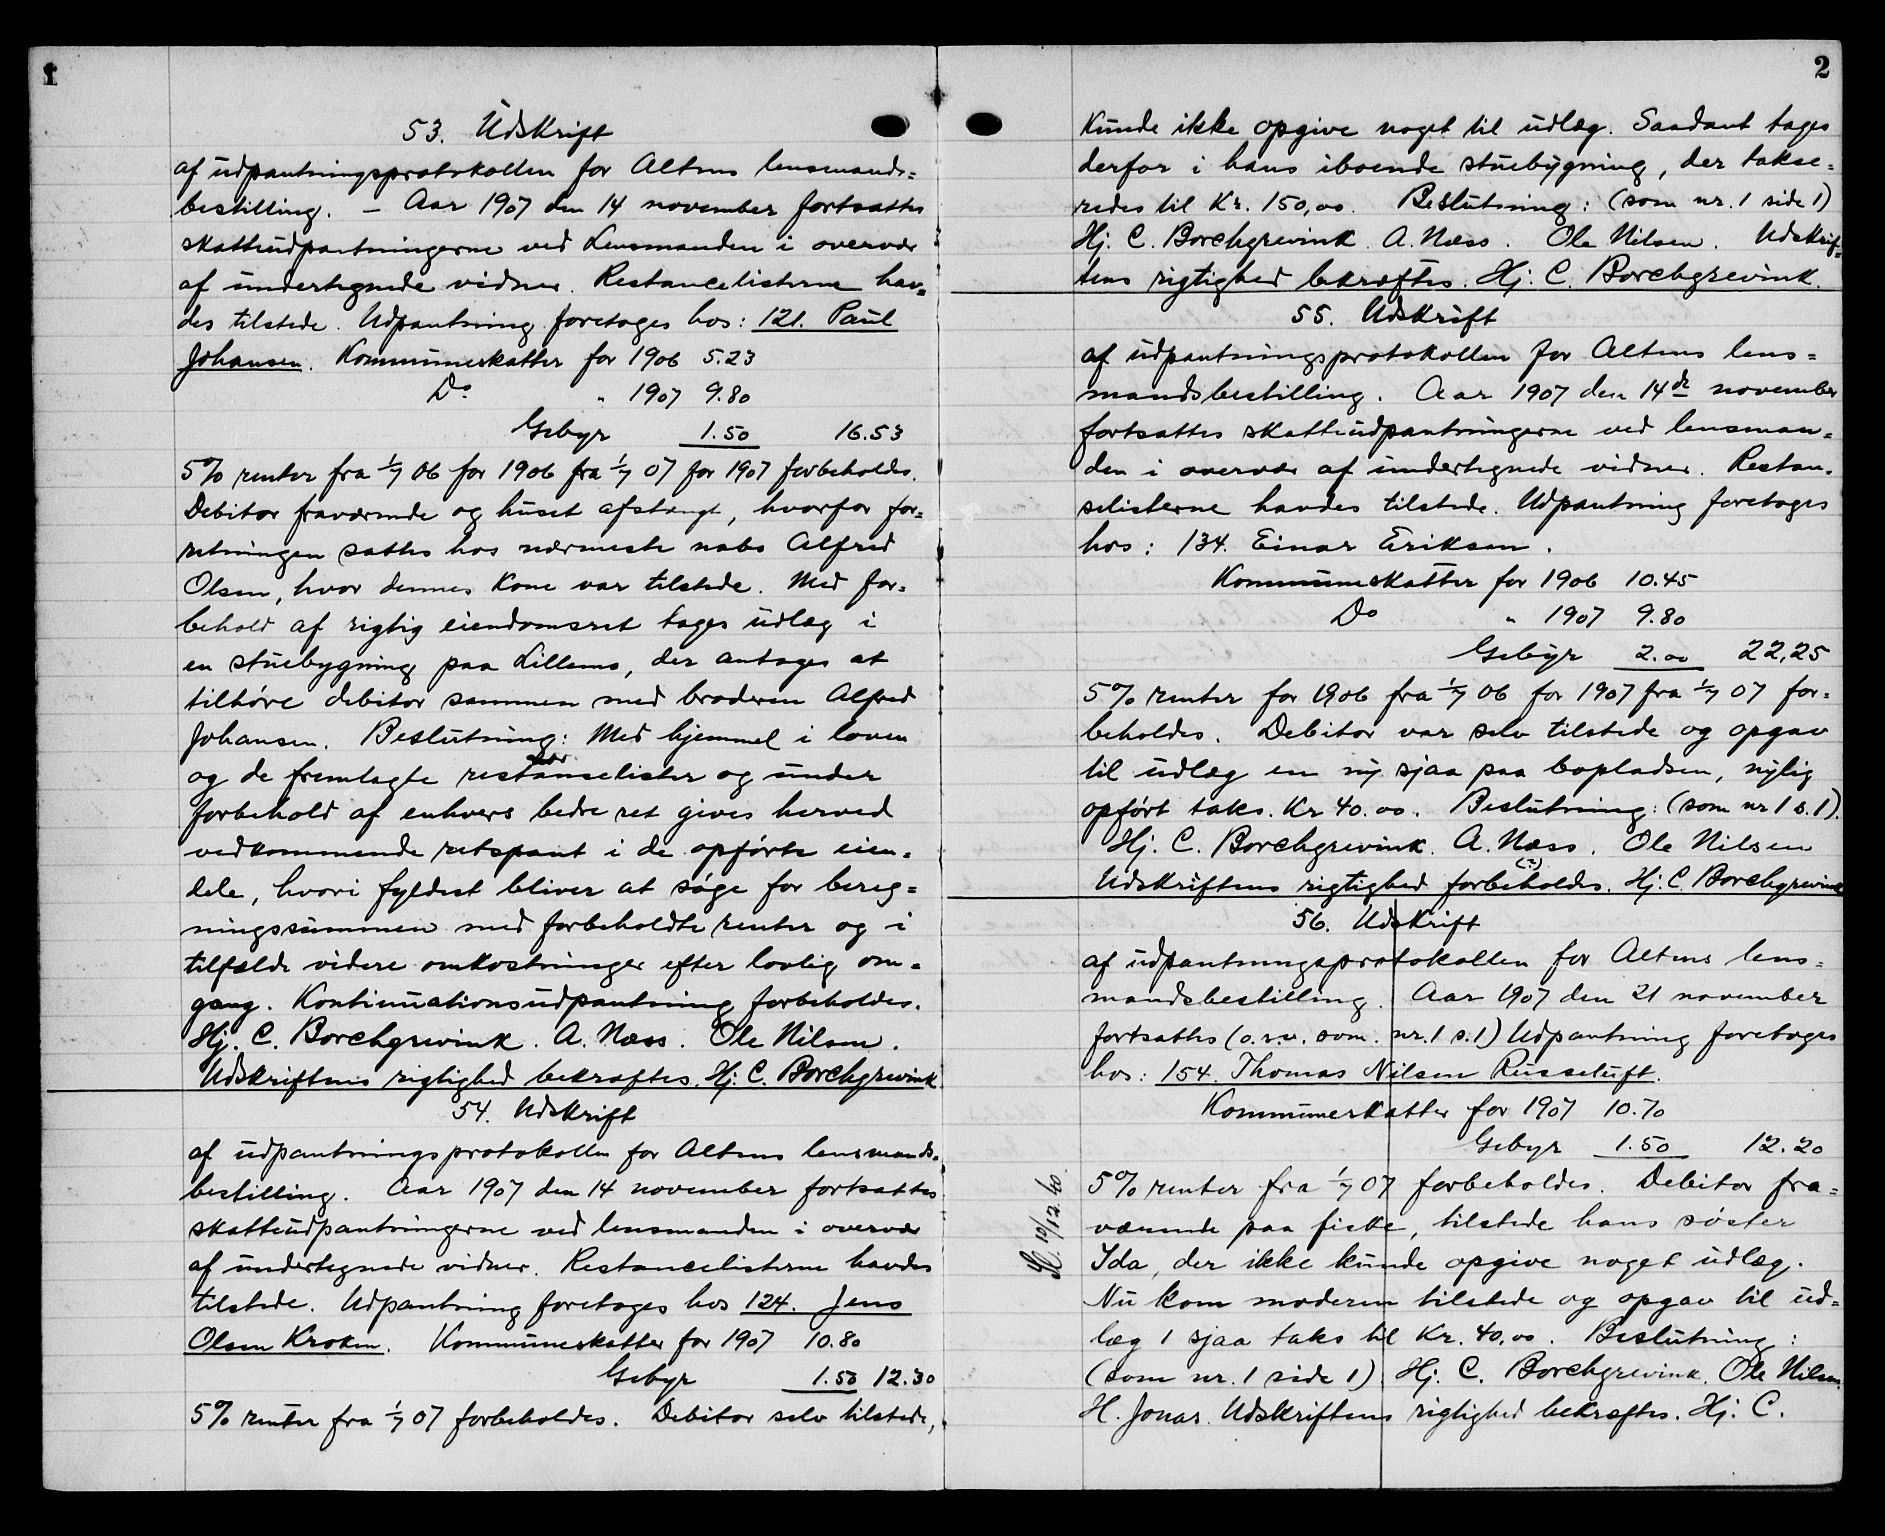 1
53. Udskrift
af udpantningsprotokollen for Altens lensmands=
bestilling. — Aar 1907 den 14 november fortsattes
skatteudpantningerne ved Lensmanden i overvær
af undertegnede vidner. Restancelisterne hav=
des tilstede. Udpantning foretoges hos: 121. Paul
Johansen. Kommuneskatter for 1906 5.23
Do " 1907 9.80
Gebyr 1.50 16.53
5% renter fra 1/7 06 for 1906 fra 1/7 07 for 1907 forbeholdes.
Debitor fraværende og huset afstængt, hvorfor for=
retningen sattes hos nærmeste nabo Alfred
Olsen, hvor dennes kone var tilstede. Med for=
behold af rigtig eiendomsret tages udlæg i
en stuebygning paa Lillemo, der antages at
tilhøre debitor sammen med broderen Alfred
Johansen. Beslutning: Med hjemmel i loven
og de fremlagte restanselister og under
forbehold af enhvers bedre ret gives herved
vedkommende retspant i de opførte eien=
dele, hvori fyldest bliver at søge for bereg=
ningssummen med forbeholdte renter og i
tilfælde videre omkostninger efter lovlig om=
gang. Kontinuationsudpantning forbeholdes.
Hj. C. Borchgrevink. A. Næss. Ole Nilsen.
Udskriftens rigtighed bekræftes. Hj. C. Borchgrevink
54. Udskrift
af udpantningsprotokollen for Altens lensmands=
bestilling. Aar 1907 den 14 november fortsattes
skatteudpantningerne ved lensmanden i overvær
af undertegnede vidner. Restancelisterne havdes
tilstede. Udpantning foretoges hos 124. Jens
Olsen Kroken. Kommuneskatter for 1907 10.80
Gebyr 1.50 12.30
5% renter fra 1/7 07 forbeholdes. Debitor selv tilstede,
2
kunde ikke opgive noget til udlæg. Saadant tages
derfor i hans iboende stuebygning, der takse=
redes til Kr. 150,00. Beslutning: (som nr. 1 side 1)
Hj. C. Borchgrevink. A. Næss. Ole Nilsen. Udskrif=
tens rigtighed bekræftes. Hj. C. Borchgrevink.
55. Udskrift
af udpantningsprotokollen for Altens lens=
mandsbestilling. Aar 1907 den 14de november
fortsattes skatteudpantningerne ved lensman=
den i overvær af undertegnede vidner. Restan=
selisterne havdes tilstede. Udpantning foretoges
hos: 134. Einar Eriksen.
Kommuneskatter for 1906 10.45
Do " 1907 9.80
Gebyr 2.00 22,25
5% renter for 1906 fra 1/7 06 for 1907 fra 1/7 07 for=
beholdes. Debitor var selv tilstede og opgav
til udlæg en ny sjaa paa bopladsen, nylig
opført taks. Kr 40.00. Beslutning: (som nr 1 s. 1).
Hj. C. Borchgrevink. A. Næss. Ole Nilsen
(?)
Udskriftens rigtighed forbeholdes. Hj. C. Borchgrevink
56. Udskrift
af udpantningsprotokollen for Altens lens=
mandsbestilling. Aar 1907 den 21 november
fortsattes (o.s.v. som nr. 1 s. 1) Udpantning foretoges
hos: 154. Thomas Nilsen Russeluft.
Kommuneskatter for 1907 10.70
Gebyr 1.50 12.20
5% renter fra 1/7 07 forbeholdes. Debitor fra=
værende paa fiske, tilstede hans søster
Ida, der ikke kunde opgive noget udlæg.
Nu kom moderen tilstede og opgav til ud=
læg 1 sjaa taks til Kr. 40,00. Beslutning:
(som nr. 1 side 1) Hj. C. Borchgrevink. Ole Nilsen.
H. Jonas. Udskriftens rigtighed bekræftes. Hj. C.
10/12.40.